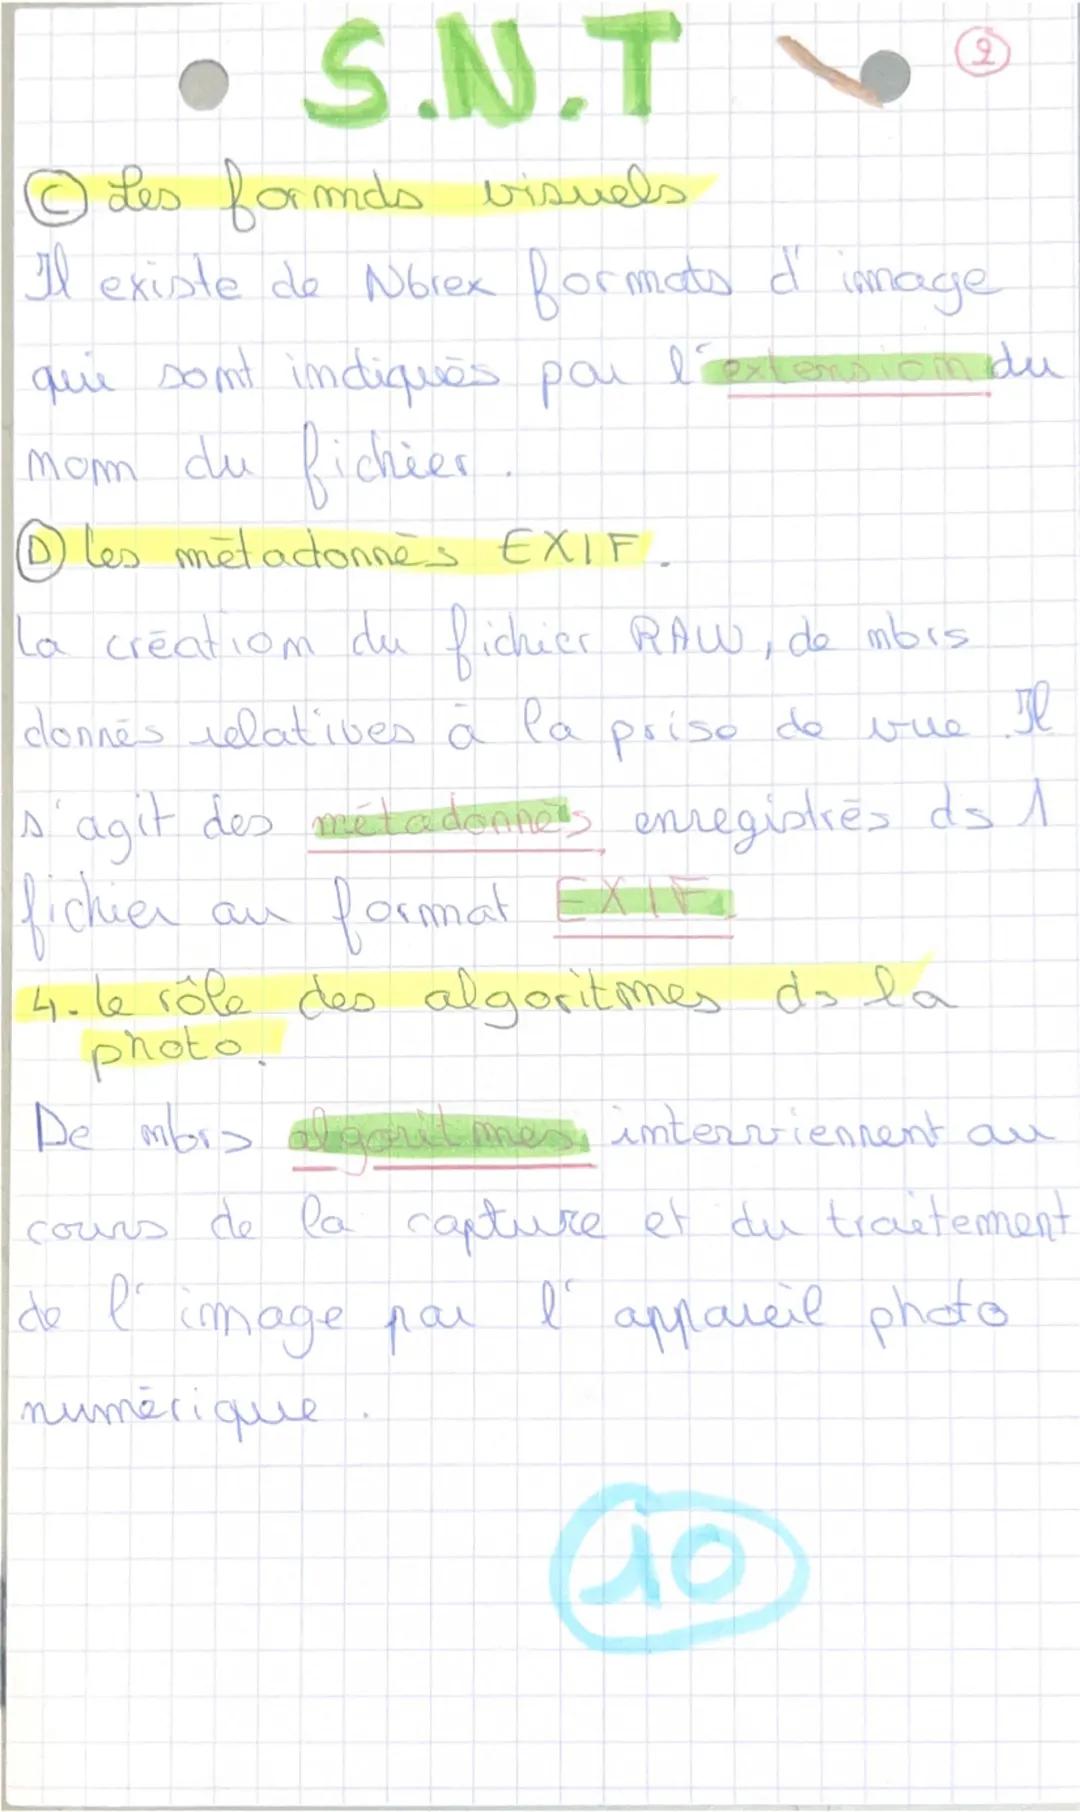 S.N.T
2
C Les formds visuels
Il existe de Nbrex formats d'image
qui sont indiqués par l'extension du
nom du fichier.
D les métadonnés EXIF.
La création du fichier RAW, de nbrs
donnés relatives à la prise de vue. Il
s'agit des métadonnés enregistrés ds 1
fichier au format EXIF.
4. le rôle des algoritmes ds la
photo.
De nbrs algoritmes interviennent au
cours de la capture et du traitement
de l'image par l'appareil photo
numérique.
10